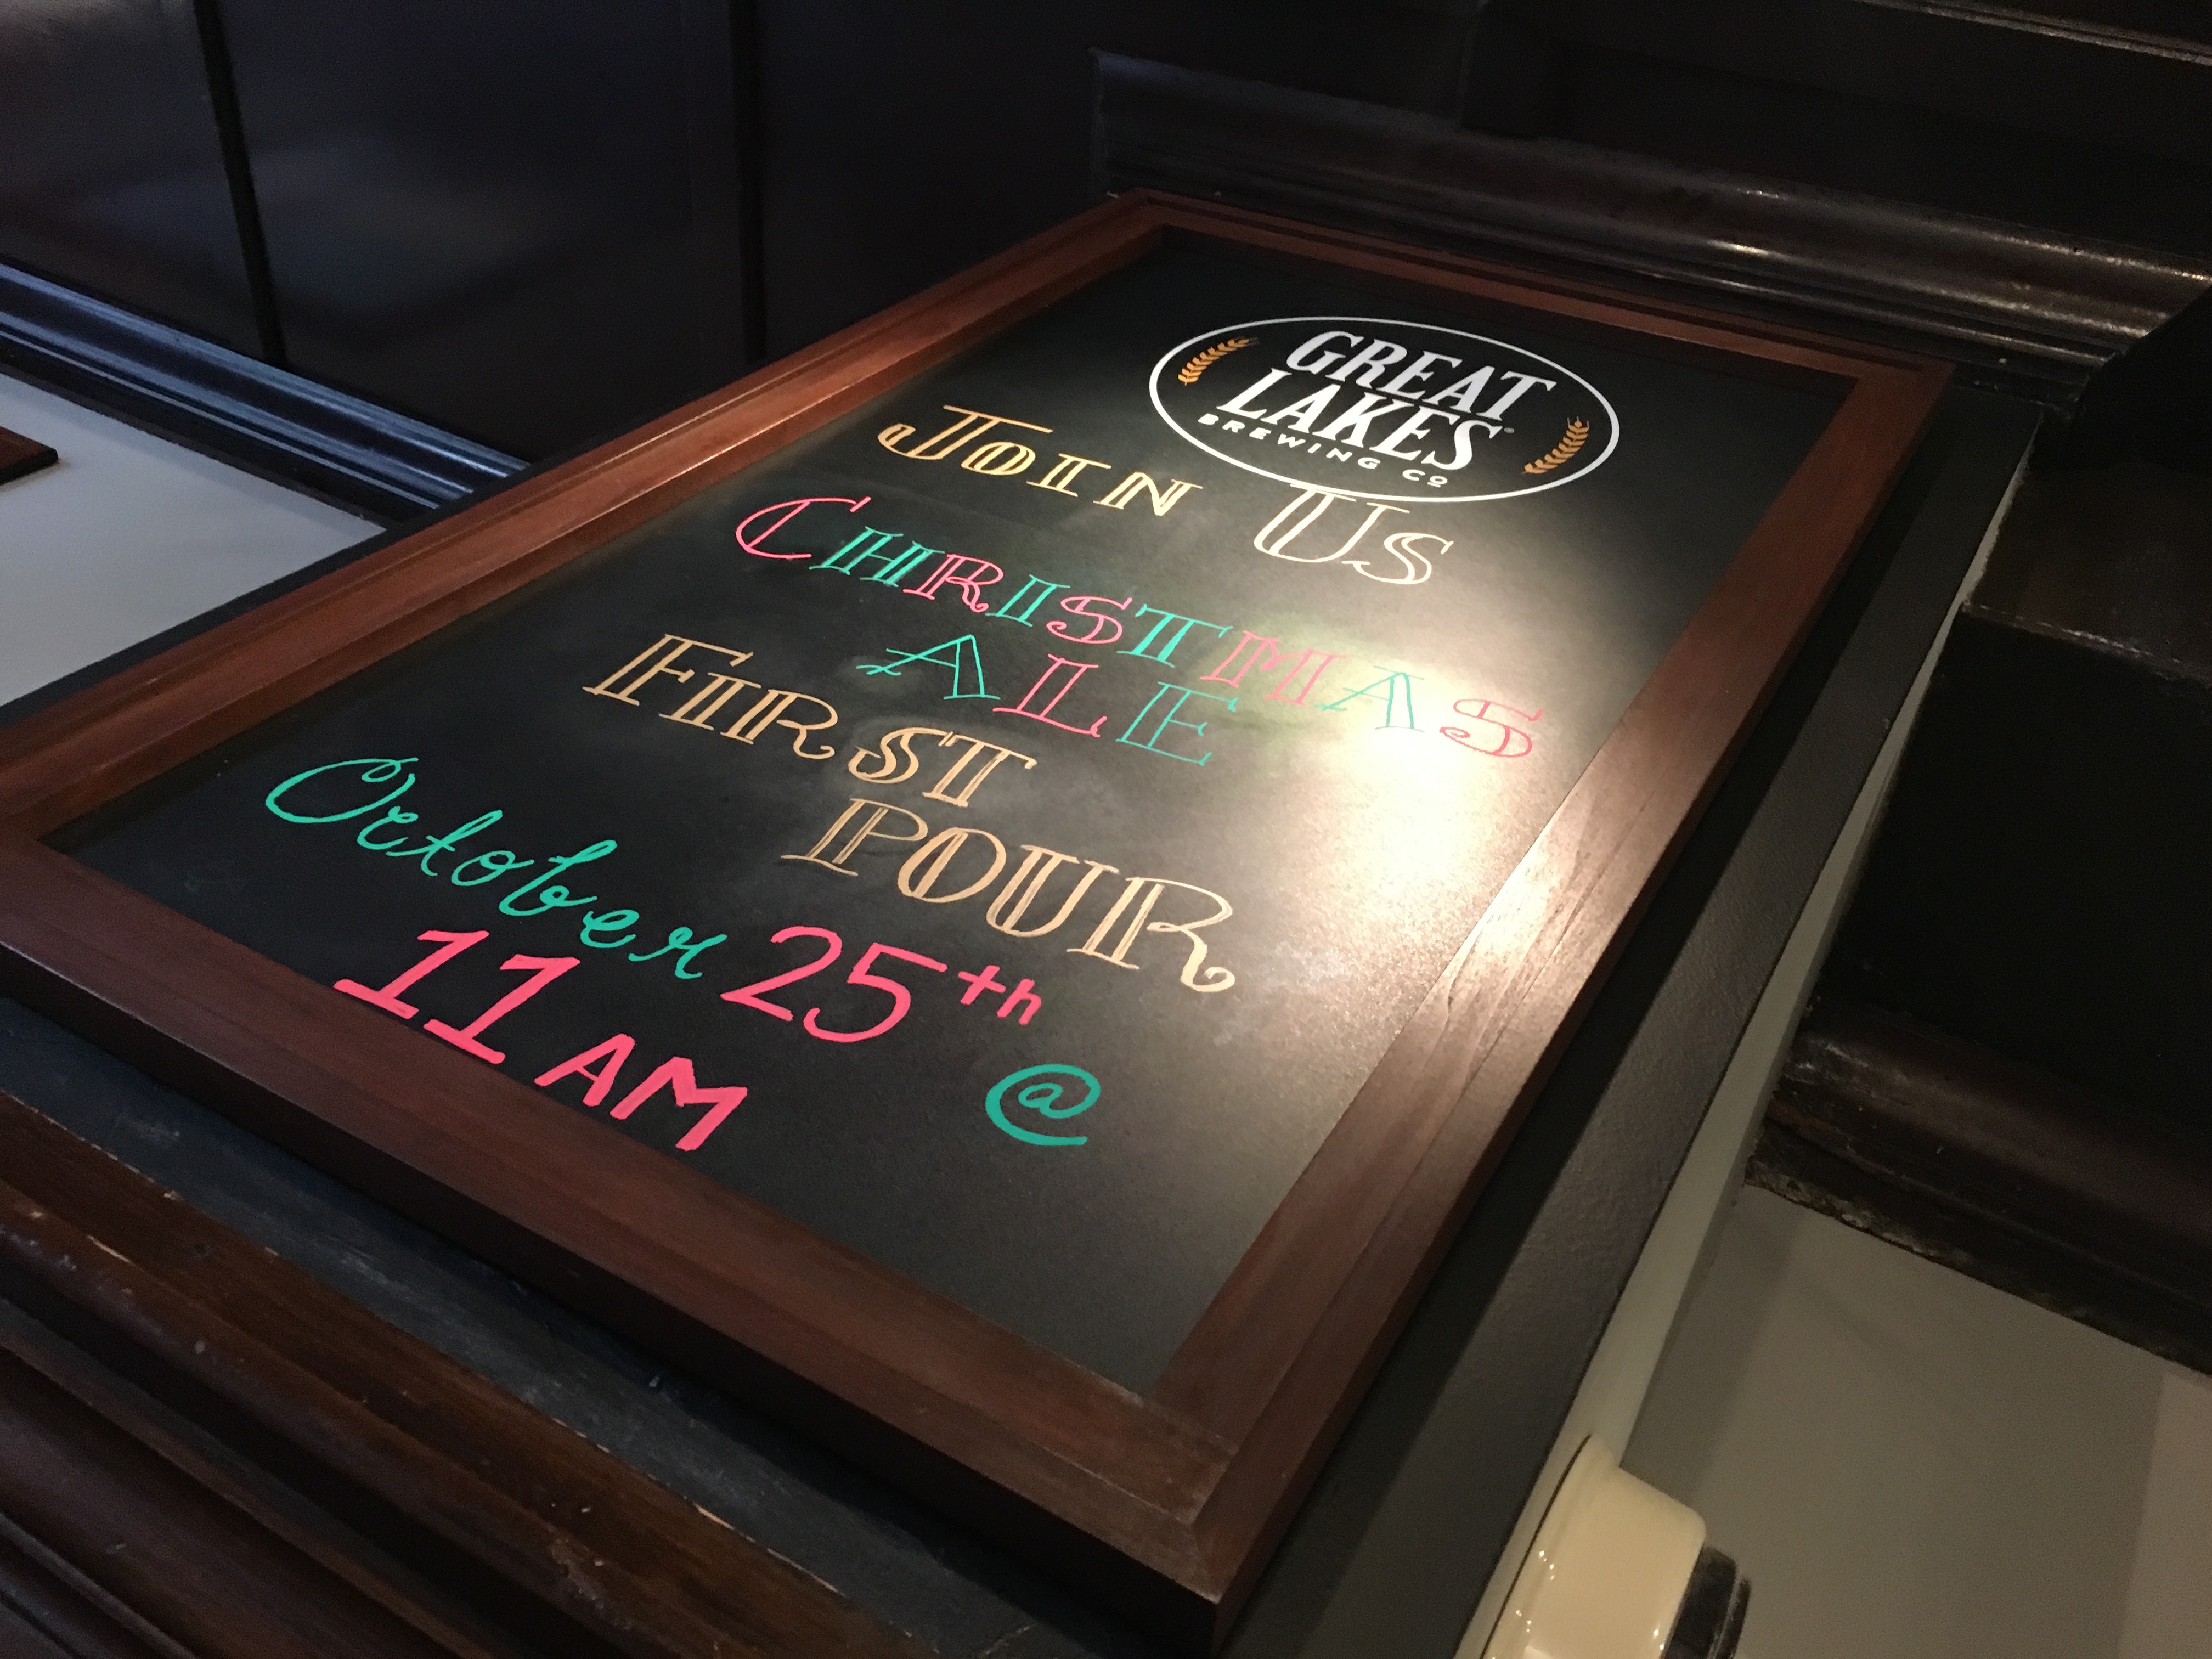 GREAT
LAKES
BREWING CO
JOIN US
CHRISTMAS
ALE
FIRST
POUR
October 25th @
11 AM